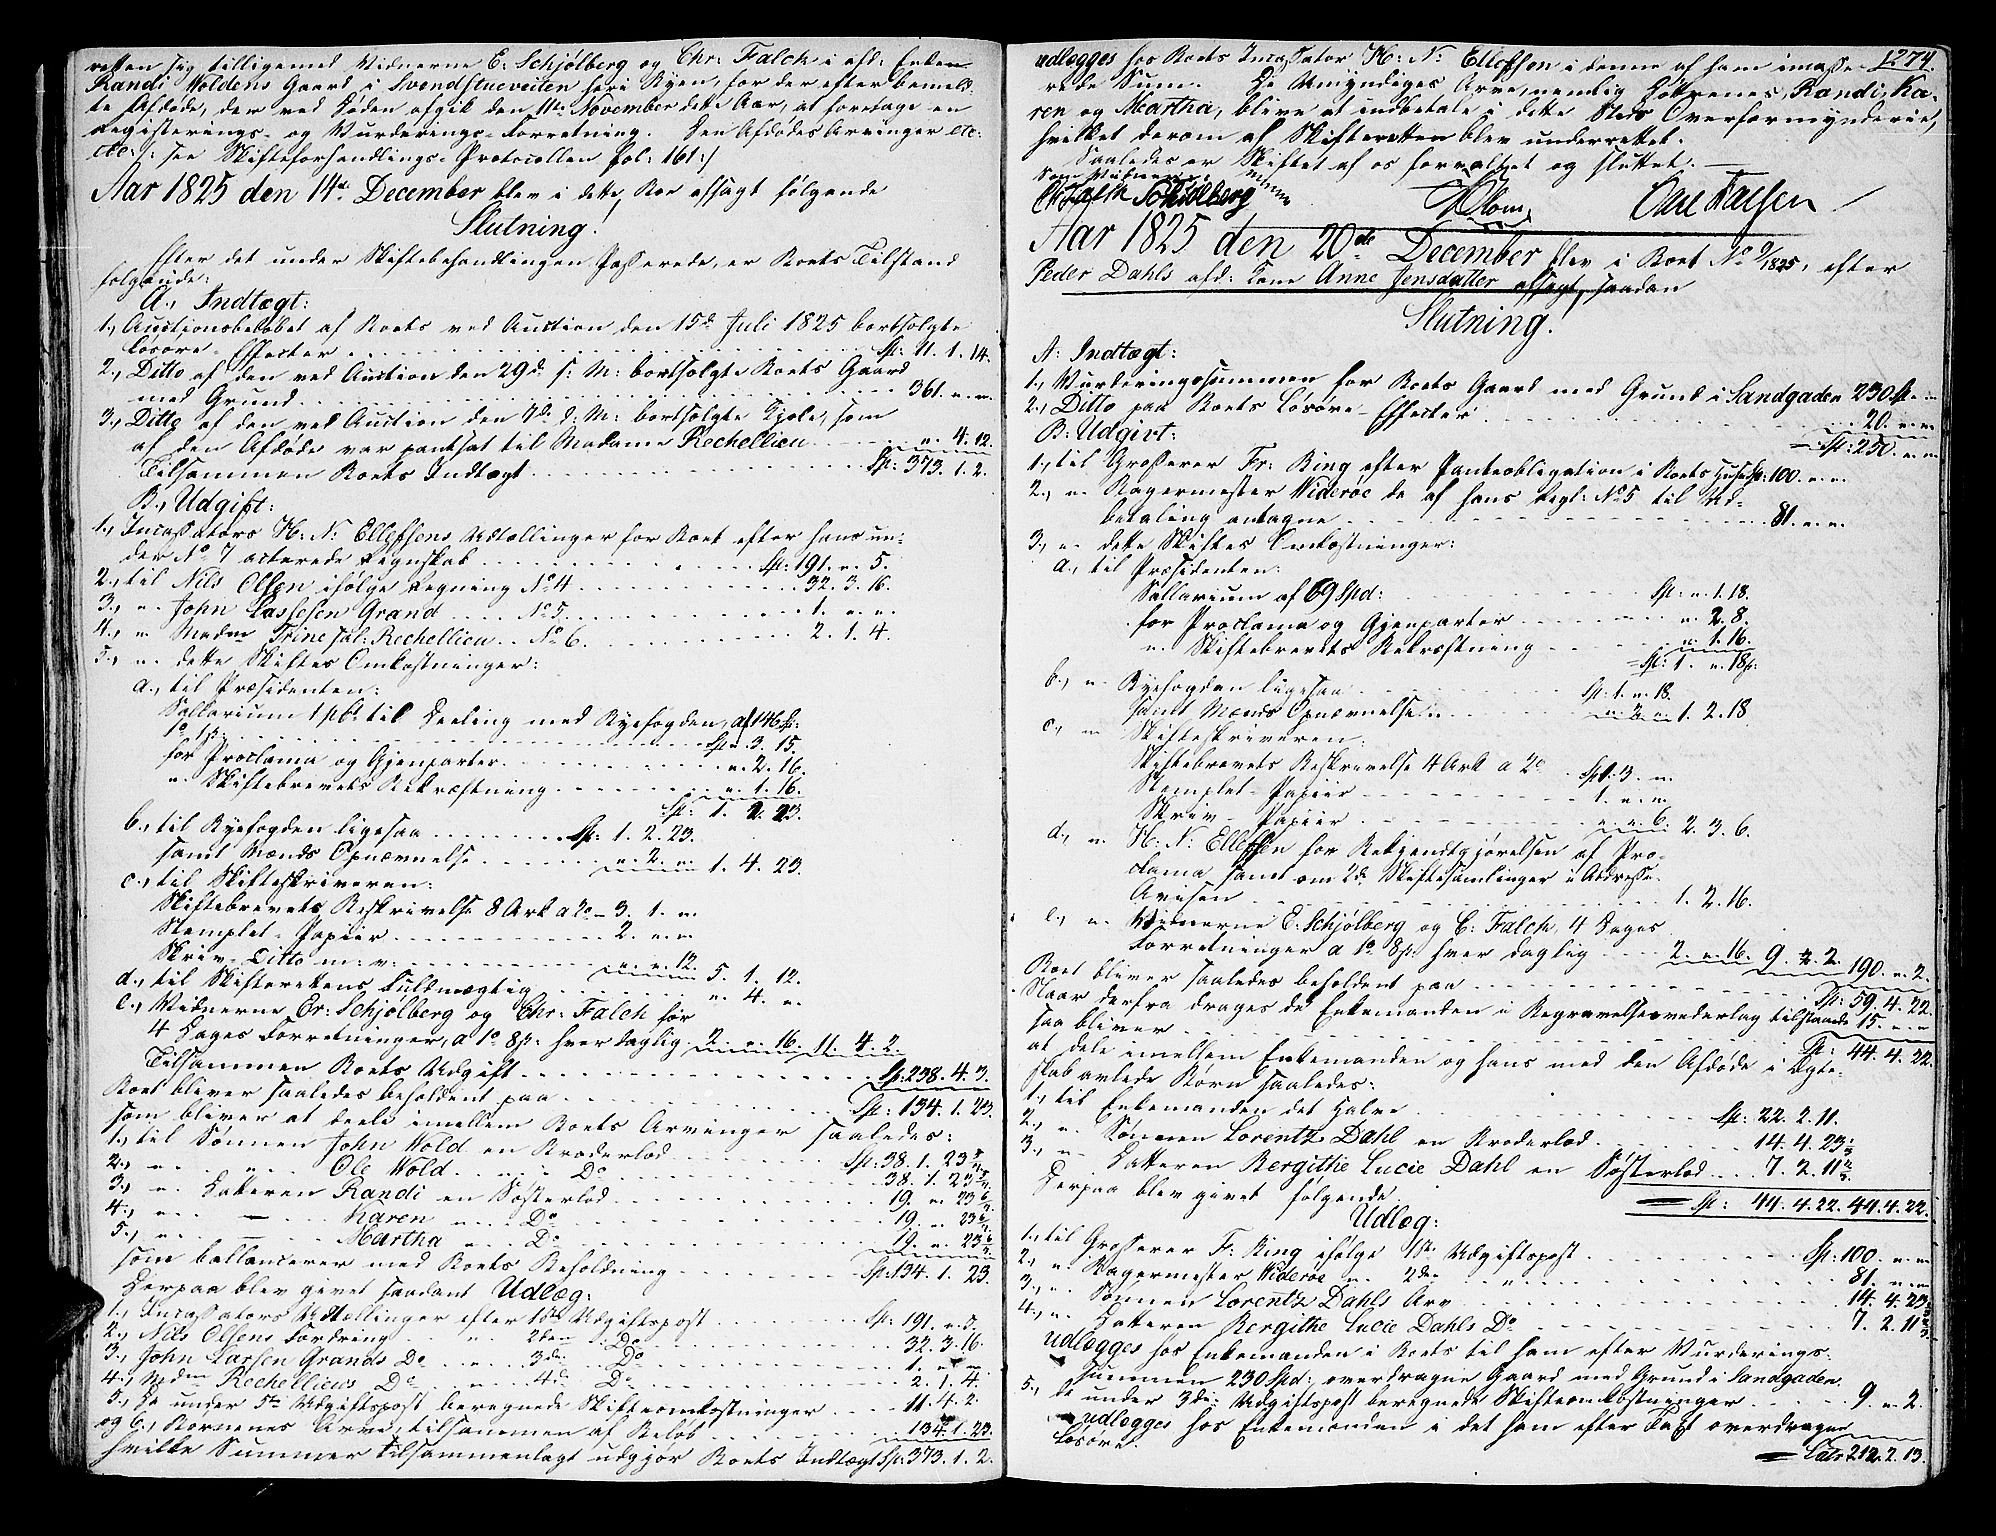 retten sig tilligemed Vidnerne E. Schjølberg og Chr. Falch i afd: Enken
Randi Woldens Gaard i Svendstueveiten her i Byen, for der efter bemeld-
te Afdøde, der ved Døden afgik den 11te November dette Aar, at foretage en
Registerings- og Vurderings-Forretning. Den Afdødes Arvinger etc:
etc: /: see Skifteforhandlings-Protocollen Fol: 161:/
Aar 1825 den 14de December blev i dette Boe afsagt følgende
Slutning!
Efter det under Skiftebehandlingen Passerede, er Boets Tilstand
følgende:
A., Indtægt:
1., Auctionsbeløbet af Boets ved Auction den 15de Juli 1825 bortsolgte
Løsøre-Effecter Sp: 11. 1. 14.
2., Ditto af den ved Auction den 29de s: M: bortsolgte Boets Gaard
med Grund 361. " "
3., Ditto af den ved Auction den 7de d: M: bortsolgte Kjole, som
af den Afdøde var pantsat til Madame Rechellieu " 4. 12.
Tilsammen Boets Indtægt Sp: 373. 1. 2.
B., Udgift:
1., Incassators H. N. Ellefsens Udtællinger for Boet efter hans un-
der No 7 acterede Regnskab Sp: 191. " 5.
2., til Nils Olsen ifølge Regning No 4 32. 3. 16.
3., " John Larsen Grand No 5 1. " "
4., " Madm Trine sal: Rechellieu No 6 2. 1. 4.
5., " dette Skiftes Omkostninger:
a., til Præsidenten:
Sallarium 1 pCt til Deeling med Byefogden, af 146 Sp:
1 o 1 s. Sp " 3. 15.
for Proclama og Gjenparter " 2. 16.
" Skiftebrevets Bekræftning " 1. 16.
Sp: 1. 2. 23.
b., til Byefogden ligesaa Sp: 1. 2. 23.
samt Mænds Opnævnelse " 2. " 1. 4. 23.
c., til Skifteskriveren:
Skiftebrevets Beskrivelse 8 Ark a 2 o 3. 1. "
Stemplet-Papiir 2. " "
Skriv-Ditto m: v: " " 12. 5. 1. 12.
d., til Skifterettens Fuldmægtig " 4. "
e., Vidnerne Er: Schjølberg og Chr: Falch for
4 Dages Forretninger, a 1 o 8 s. hver daglig 2. " 16. 11. 4. 2.
Tilsammen Boets Udgift Sp. 238. 4. 3.
Boet bliver saaledes beholdent paa Sp: 134. 1. 23.
som bliver at deele imellem Boets Arvinger saaledes:
1., til Sønnen John Wold en Broderlod Sp: 38. 1. 23 3/7
2., " " Ole Wold " Do 38. 1. 23 3/7
3., " Datteren Randi en Søsterlod 19. " 23 5/7
4., " — Karen " Do 19. " 23 5/7
5., " — Martha " Do 19. " 23 5/7
som ballancerer med Boets Beholdning Sp: 134. 1. 23.
Herpaa blev givet saadant Udlæg:
1., Incassators Udtællinger efter 1ste Udgiftspost Sp: 191. " 5.
2., Nils Olsens Fordring " 2den Do 32. 3. 16.
3., John Larsen Grands Do " 3die Do 1. " "
4., Mdm Rechellieus Do " 4de Do 2. 1. 4.
5., De under 5te Udgiftspost beregnede Skifteomkostninger 11. 4. 2.
og 6., Børnenes Arve, tilsammen af Beløb 134. 1. 23.
hvilke Summer tilsammenlagt udgjør Boets Indtægt Sp: 373. 1. 2.
1274.
udlægges hos Boets Incassator H: N: Ellefsen i denne af ham incasse-
rede Sum. De Umyndiges Arve, nemlig Døttrenes, Randi, Ka-
ren og Martha, bliver at indbetale i dette Steds Overformynderie,
hvilket derom af Skifteretten blev underrettet.
Saaledes er Skiftet af os forvaltet og sluttet. —
Som Vidner:
Ch Falch Schiølberg Blom Carl Falsen
Aar 1825 den 20de December blev i Boet No 9/1825, efter
Peder Dahls afd: Kone Anne Jensdatter afsagt saadan
Slutning!
A: Indtægt:
1., Vurderingssummen for Boets Gaard med Grund i Sandgaden 230 Sp " "
2., Ditto paa Boets Løsøre-Effecter 20. " "
Sp: 250. " "
B: Udgivt:
1., til Grosserer Fr: Bing efter Panteobligation i Boets Huse Sp: 100. " "
2., " Bagermester Widerøe de af hans Regl: No 5 til Ud-
betaling antagne 81. " "
3., " dette Skiftes Omkostninger:
a., til Præsidenten:
Sallarium af 69 Spd: Sp: " 1. 18.
for Proclama og Gjenparter " 2. 8.
" Skiftebrevets Bekræftning " 1. 16.
Sp: 1. " 18 s.
b., " Byefogden ligesaa Sp: 1. " 18.
samt Mænds Opnævnelse " 2. " 1. 2. 18
c., " Skifteskriveren:
Skiftebrevets Beskrivelse 4 Ark a 2 o Sp 1. 3. "
Stemplet-Papiir 1. " "
Skriv-Papiir " " 6. 2. 3. 6.
d., " H. N. Ellefsen for Bekjendtgjørelsen af Pro-
clama samt om 2de Skiftesamlinger i Adresse-
Avisen 1. 2. 16.
e., " Vidnerne E. Schjølberg og C. Falch, 4 Dages
Forretninger a 1 o 8 s. hver daglig 2. " 16. 9. " 2. 190. " 2.
Boet bliver saaledes beholdent paa Sp: 59. 4. 22.
Naar derfra drages de Enkemanden i Begravelsesvederlag tilstaaede 15. " "
saa bliver Sp: 44. 4. 22.
at dele imellem Enkemanden og hans med den Afdøde i Ægte-
skab avlede Børn saaledes:
1., til Enkemanden det Halve Sp: 22. 2. 11.
2., " Sønnen Lorentz Dahl en Broderlod 14. 4. 23 1/3
3., " Datteren Bergithe Lucie Dahl en Søsterlod 7. 2. 11 2/3
Sp: 44. 4. 22. 44. 4. 22.
Herpaa blev givet følgende
Udlæg:
1., til Grosserer F. Bing ifølge 1ste Udgiftspost Sp: 100. " "
2., " Bagermester Widerøe " 2den " 81. " "
3., " Sønnen Lorentz Dahls Arv 14. 4. 23 1/3
4., " Datteren Bergithe Lucie Dahls Do 7. 2. 11 2/3
udlægges hos Enkemanden i Boets til ham efter Vurderings-
Summen 230 Spd: overdragne Gaard med Grund i Sandgaden.
5., de under 3die Udgiftspost beregnede Skifteomkostninger 9. " 2.
udlægges hos Enkemanden i det ham efter Taxt overdragne
Løsøre.
Lats 212. 2. 13.